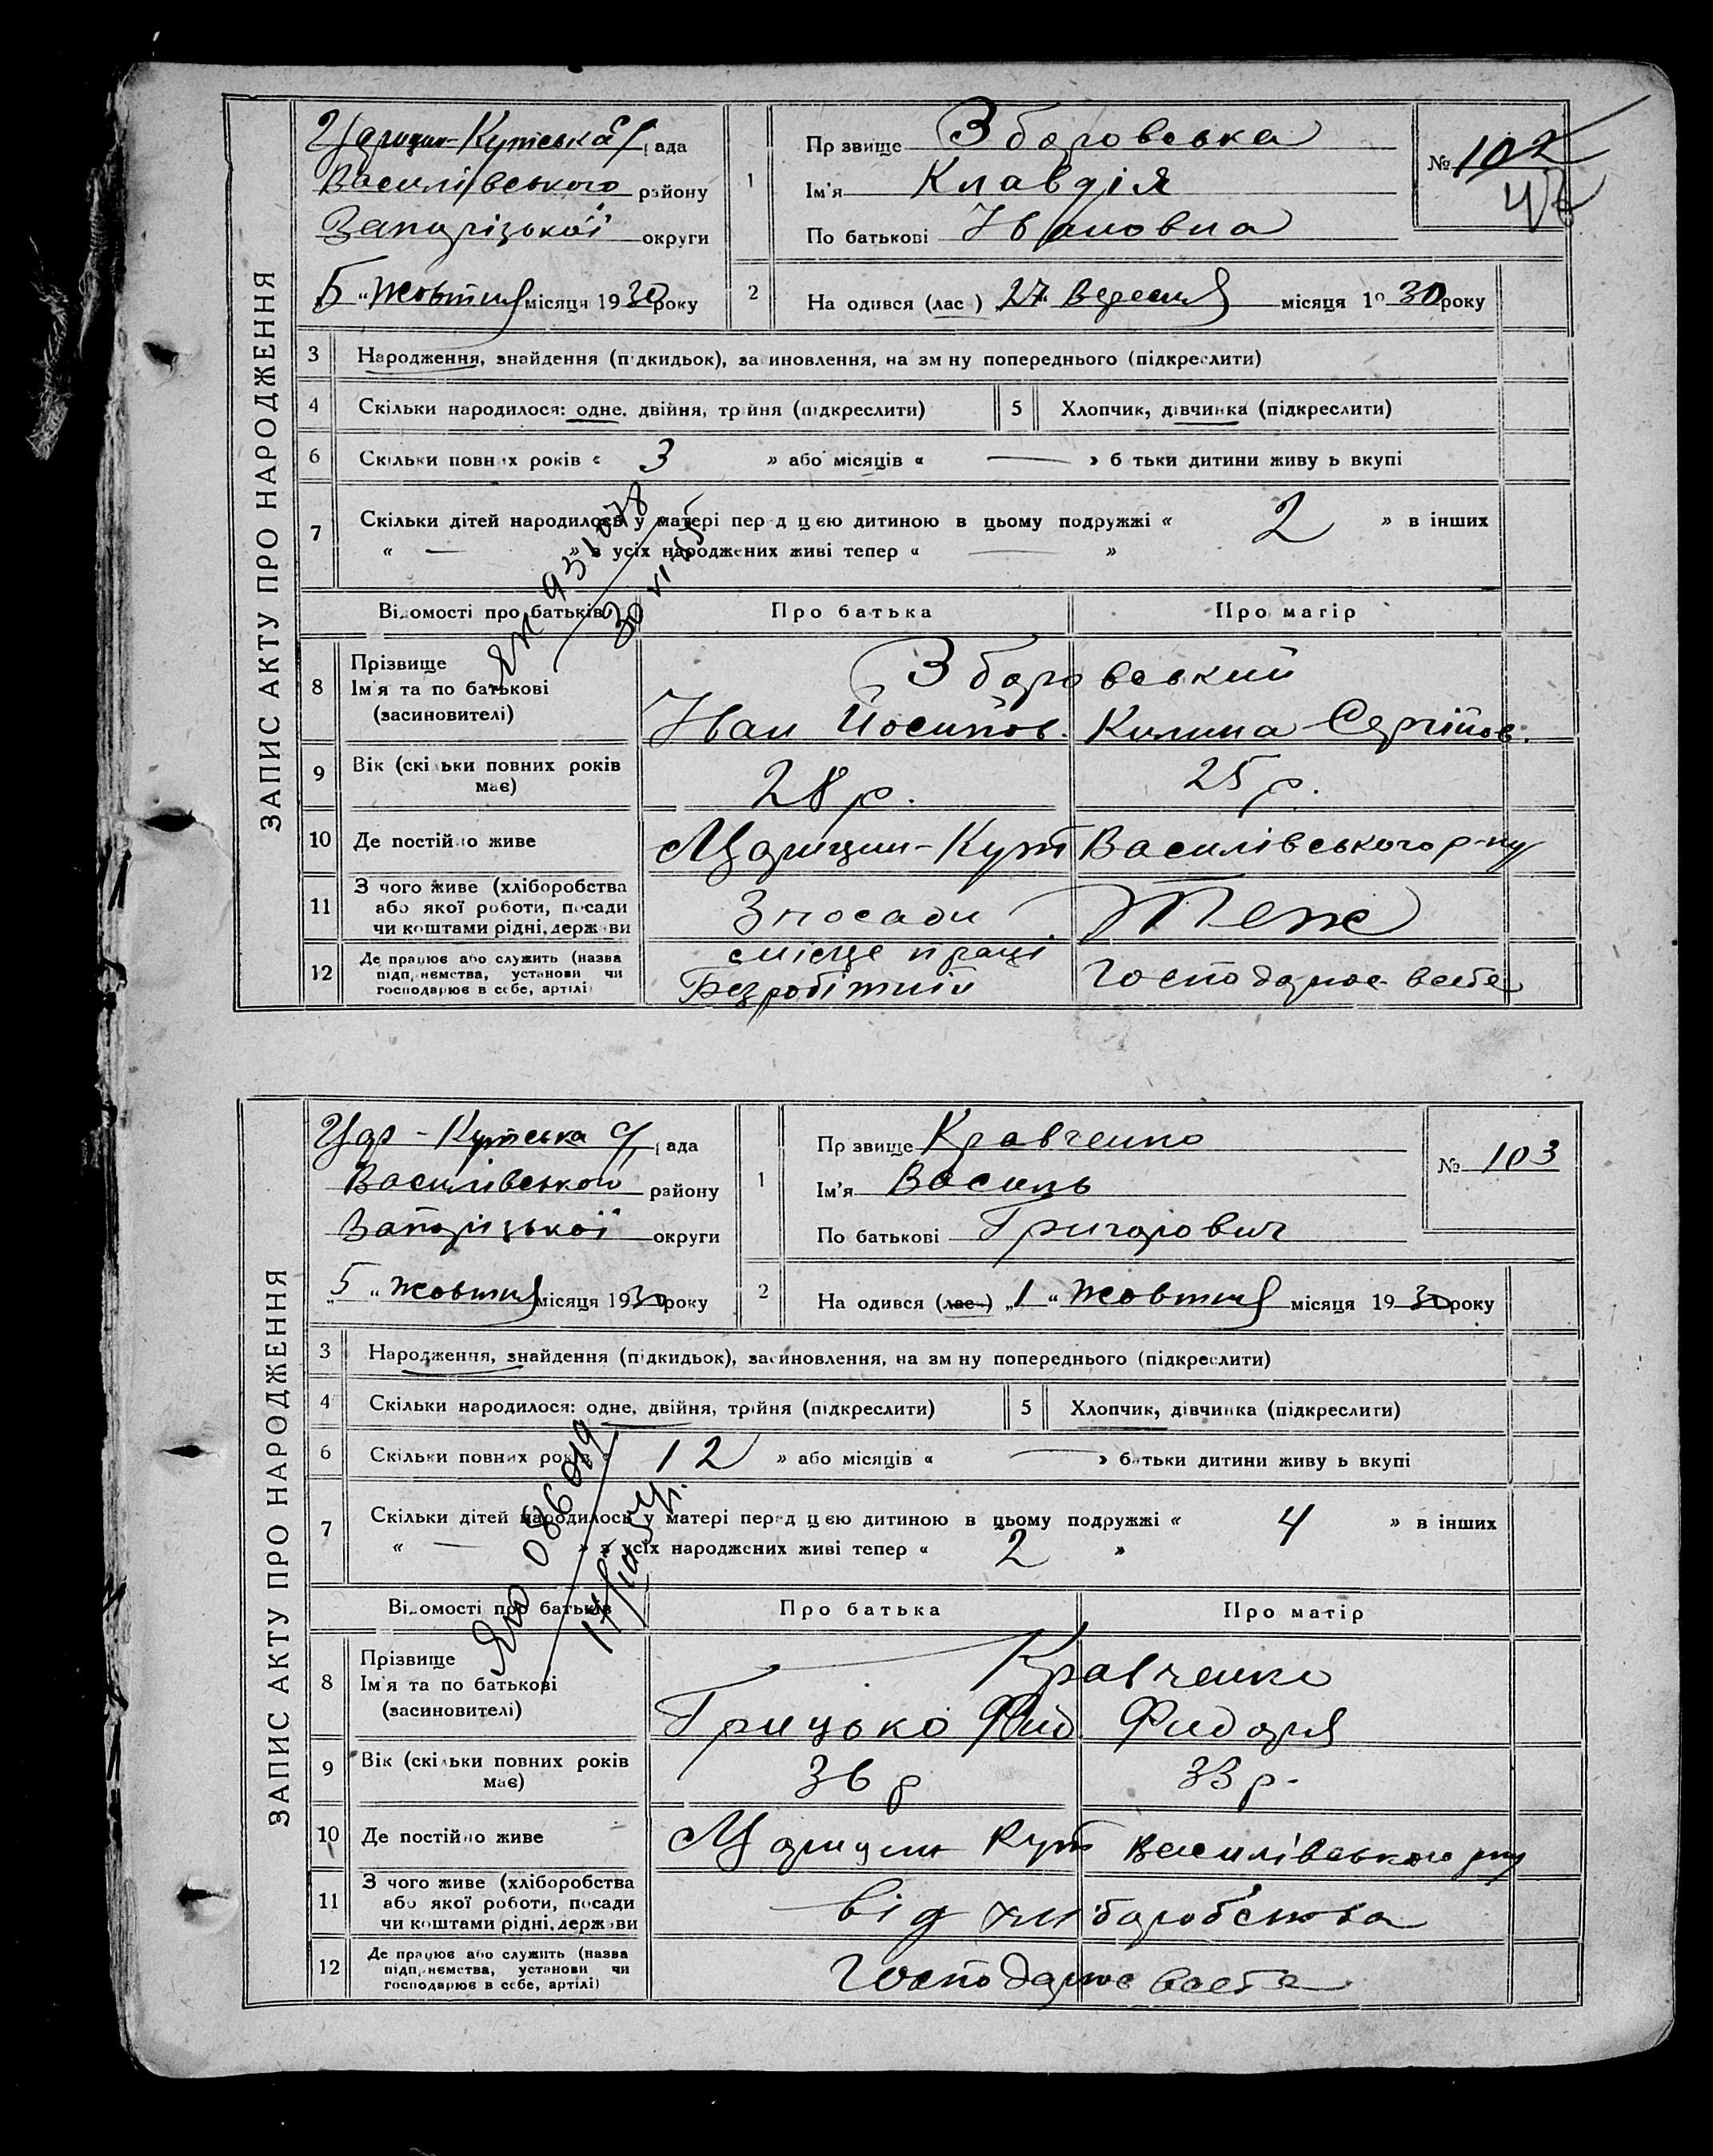 ЗАПИС АКТУ ПРО НАРОДЖЕННЯ
Царицин-Кутська с/рада
Василівського району
Запорізької округи
"5" Жовтня місяця 1930 року
1 Прізвище Зборовська
Ім'я Клавдія
По батькові Ивановна
№ 102
2 На одився (лас ) "27" Вересня місяця 1930 року
3 Народження, знайдення (підкидьок), засиновлення, на зм ну попереднього (підкреслити)
4 Скільки народилося: одне, двійня, трійня (підкреслити)
5 Хлопчик, дівчинка (підкреслити)
6 Скільки повних років « 3 » або місяців « — » б тьки дитини живу ь вкупі
7 Скільки дітей народилось у матері перед цією дитиною в цьому подружжі « 2 » в інших
« — » з усіх народжених живі тепер « — »
931078
30 VI
Відомості про батьків Про батька Про матір
8 Прізвище
Ім'я та по батькові
(засиновителі)
Зборовський
Иван Йосипов. Килина Сергійов.
9 Вік (скільки повних років має) 28 р. 25 р.
10 Де постійно живе Царицин-Кут Василівського р-ну
11 З чого живе (хліборобства
або якої роботи, посади
чи коштами рідні, держави
З посади Теж
12 Де працює або служить (назва
підприємства, установи чи
господарює в себе, артілі)
смісце праці
Безробітний Господарює в себе
ЗАПИС АКТУ ПРО НАРОДЖЕННЯ
Цар-Кутська с/рада
Василівського району
Запорізької округи
"5" жовтня місяця 1930 року
1 Прізвище Кравченко
Ім'я Василь
По батькові Григорович
№ 103
2 На одився (лас ) "1" жовтня місяця 1930 року
3 Народження, знайдення (підкидьок), засиновлення, на зм ну попереднього (підкреслити)
4 Скільки народилося: одне, двійня, трійня (підкреслити)
5 Хлопчик, дівчинка (підкреслити)
6 Скільки повних років « 12 » або місяців « — » батьки дитини живу ь вкупі
7 Скільки дітей народилось у матері перед цією дитиною в цьому подружжі « 4 » в інших
« — » з усіх народжених живі тепер « 2 »
086019
Відомості про батьків Про батька Про матір
8 Прізвище
Ім'я та по батькові
(засиновителі)
Кравченко
Грицько Фид. Фидора
9 Вік (скільки повних років має) 36 р 33 р.
10 Де постійно живе Царицин Кут Василівського рну
11 З чого живе (хліборобства
або якої роботи, посади
чи коштами рідні, держави
від хліборобства
12 Де працює або служить (назва
підприємства, установи чи
господарює в себе, артілі)
Господарює в себе